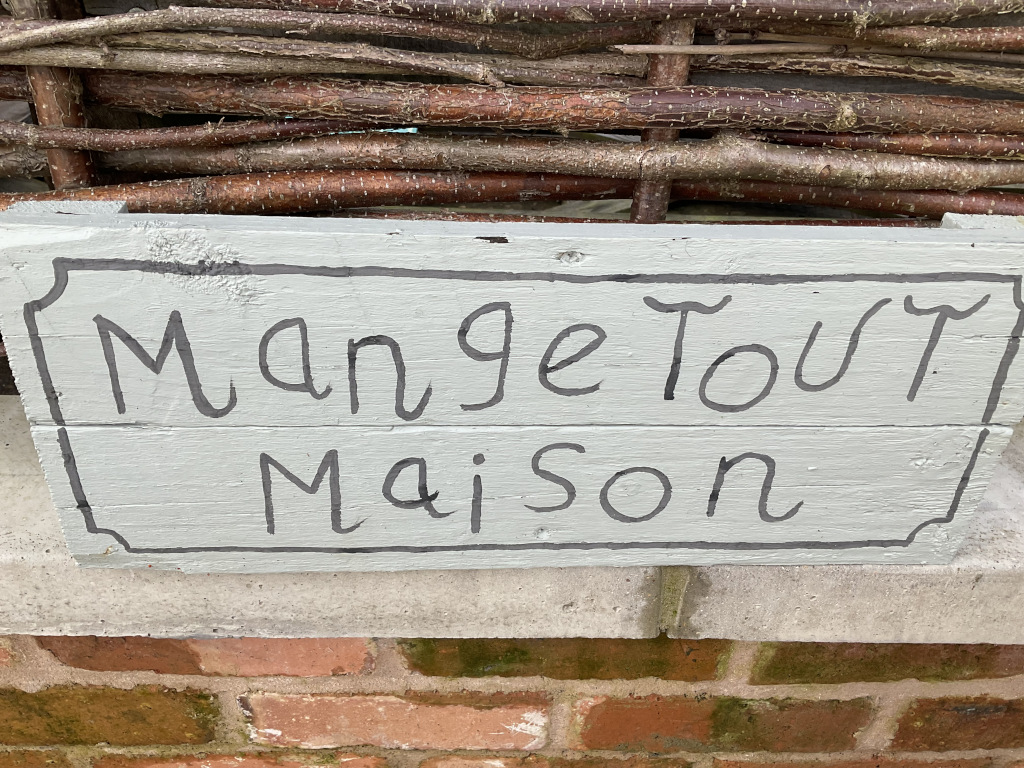 MangeTOUT
Maison